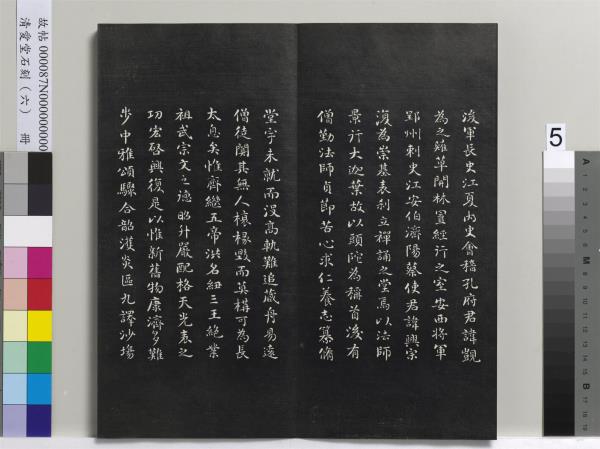 後軍長史江夏內史會稽孔府君諱覬
為之薙草開林置經行之室安西將軍
郢州刺史江安伯濟陽蔡使君諱興宗
復為崇基表刹立禪誦之堂焉以法師
景行大迦葉故以頭陀為稱首後有
僧勤法師貞節苦心求仁養志纂脩
堂宇未就而没高軌難追藏舟易遠
僧徒闃其無人榱椽毀而莫構可為長
太息矣惟齊繼五帝洪名紐三王絶業
祖武宗文之德昭升嚴配格天光表之
功宏啓興復是以惟新舊物康濟多難
步中雅頌驟合韶濩炎區九譯沙場
清愛堂石刻（六） 冊
5